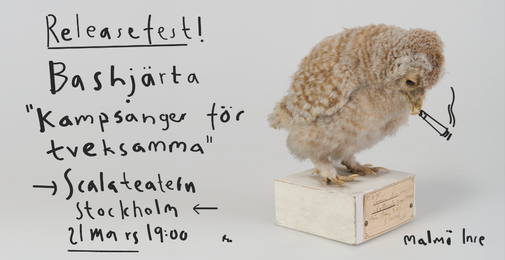 Releasefest!
Bashjärta
"Kampsånger för
tveksamma"
→ Scalateatern
Stockholm ←
21 mars 19:00
malmö Inre